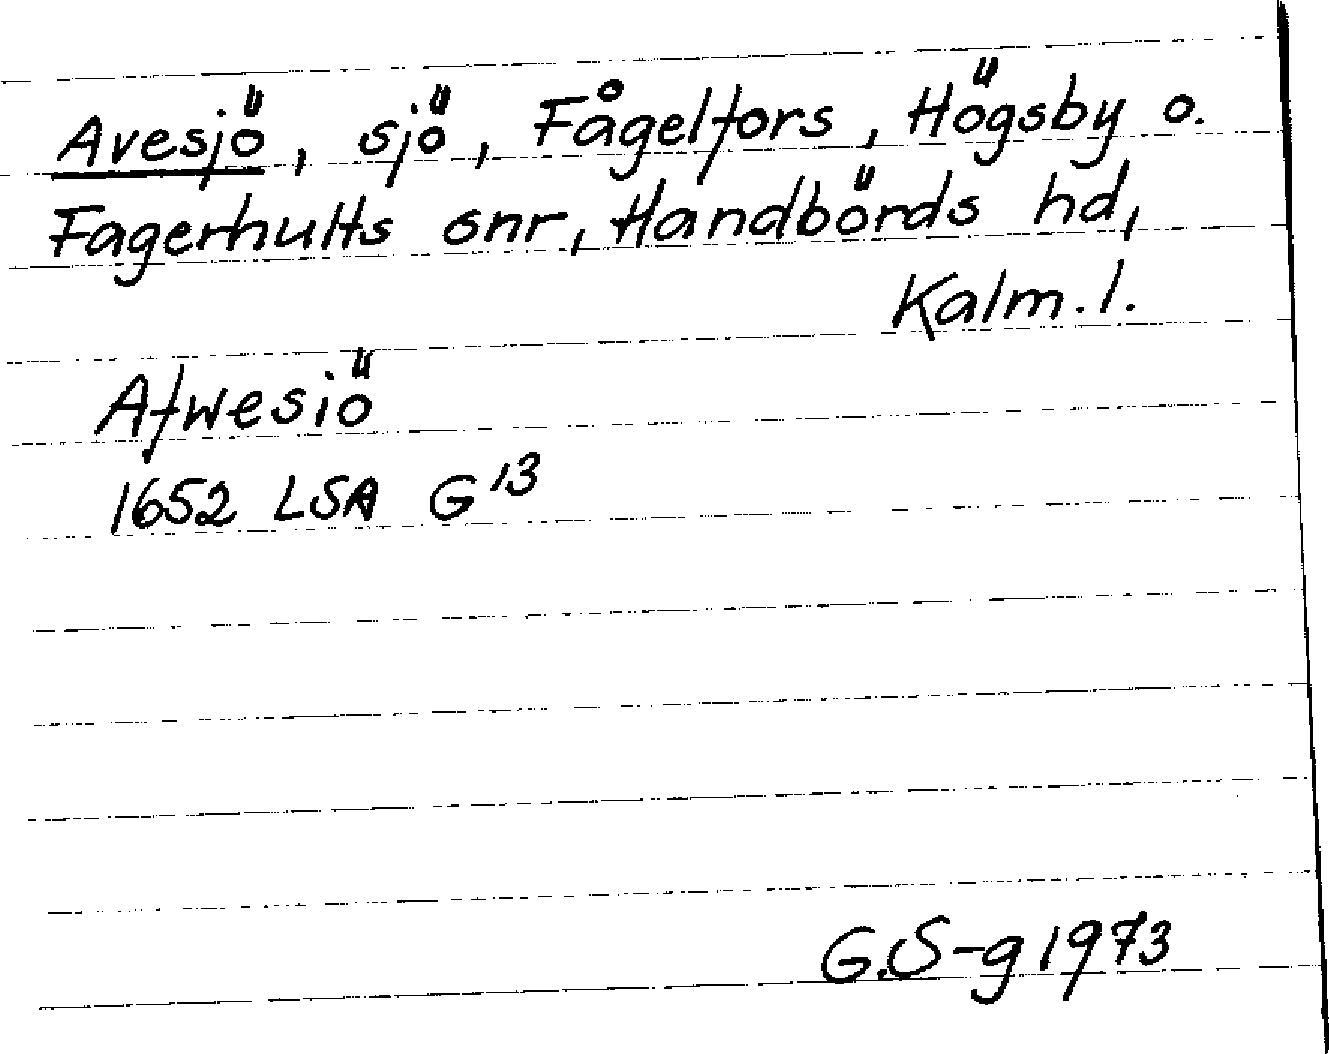 Avesjö, sjö, Fågelfors, Högsby o.
Fagerhults snr, Handbörds hd,
Kalm. l.
Afwesiö
1652 LSA G 13
G.S-g 1973